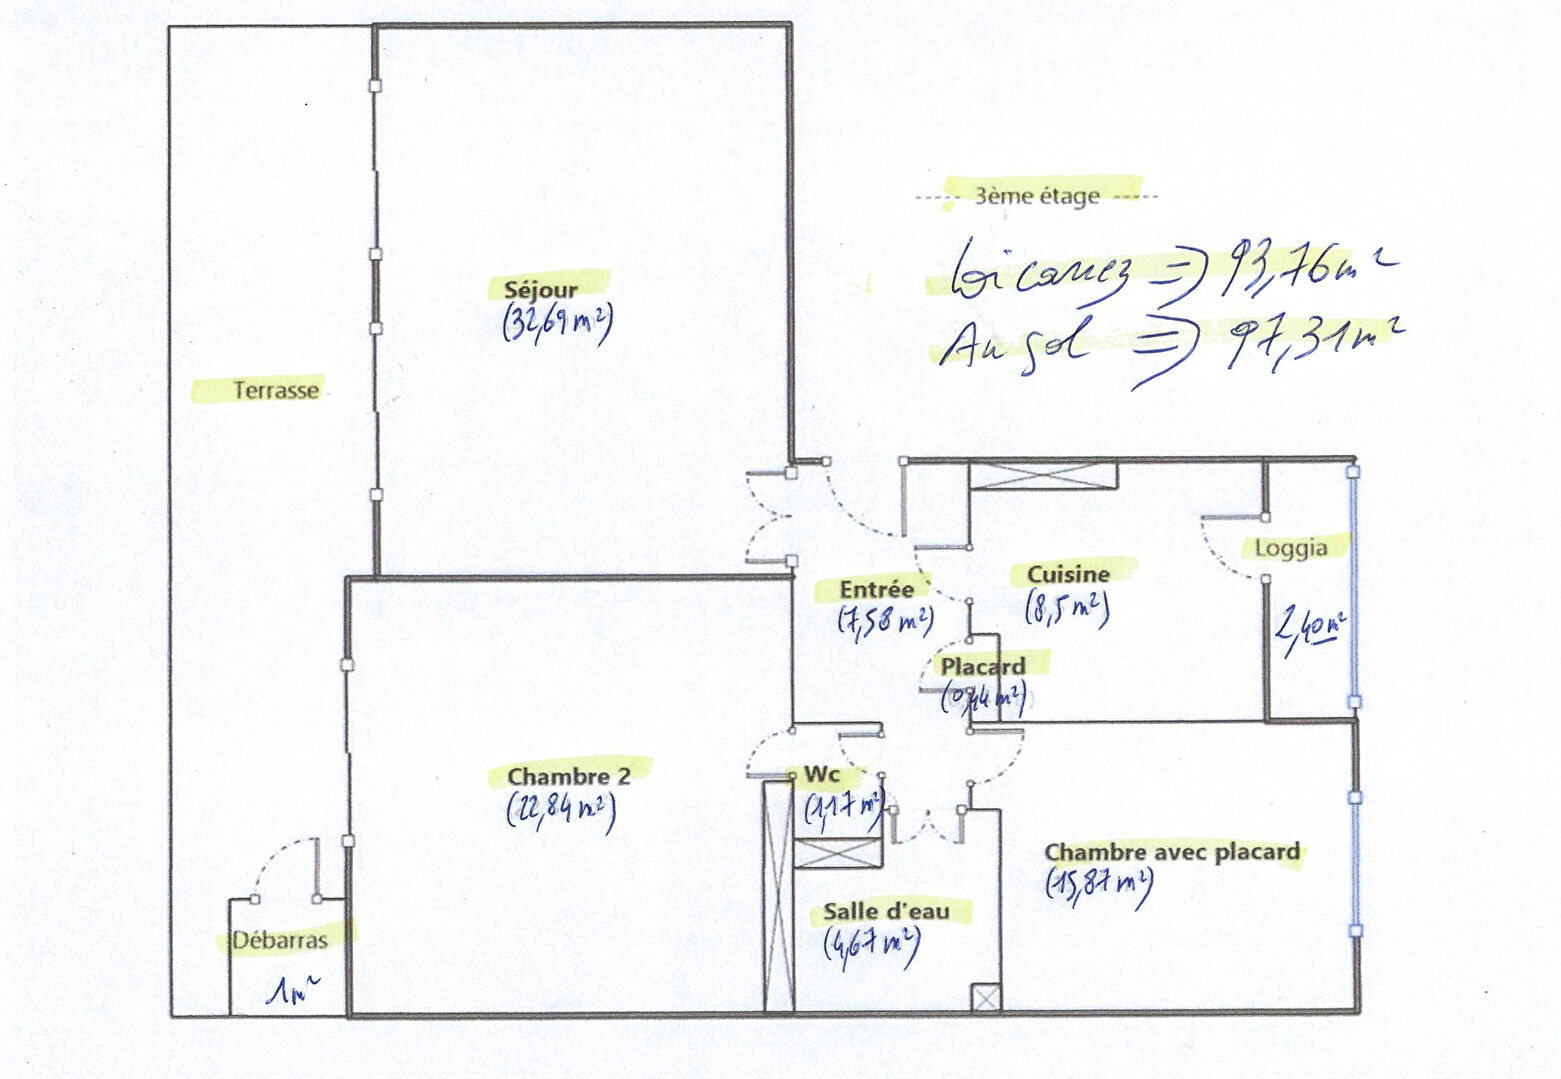 3ème étage
Loi carrez => 93,76 m²
Au sol => 97,31 m²
Séjour
(32,69 m²)
Terrasse
Loggia
2,40 m²
Cuisine
(8,5 m²)
Entrée
(7,58 m²)
Placard
(0,44 m²)
Chambre 2
(22,84 m²)
Wc
(1,17 m²)
Chambre avec placard
(15,87 m²)
Salle d'eau
(4,67 m²)
Débarras
1 m²